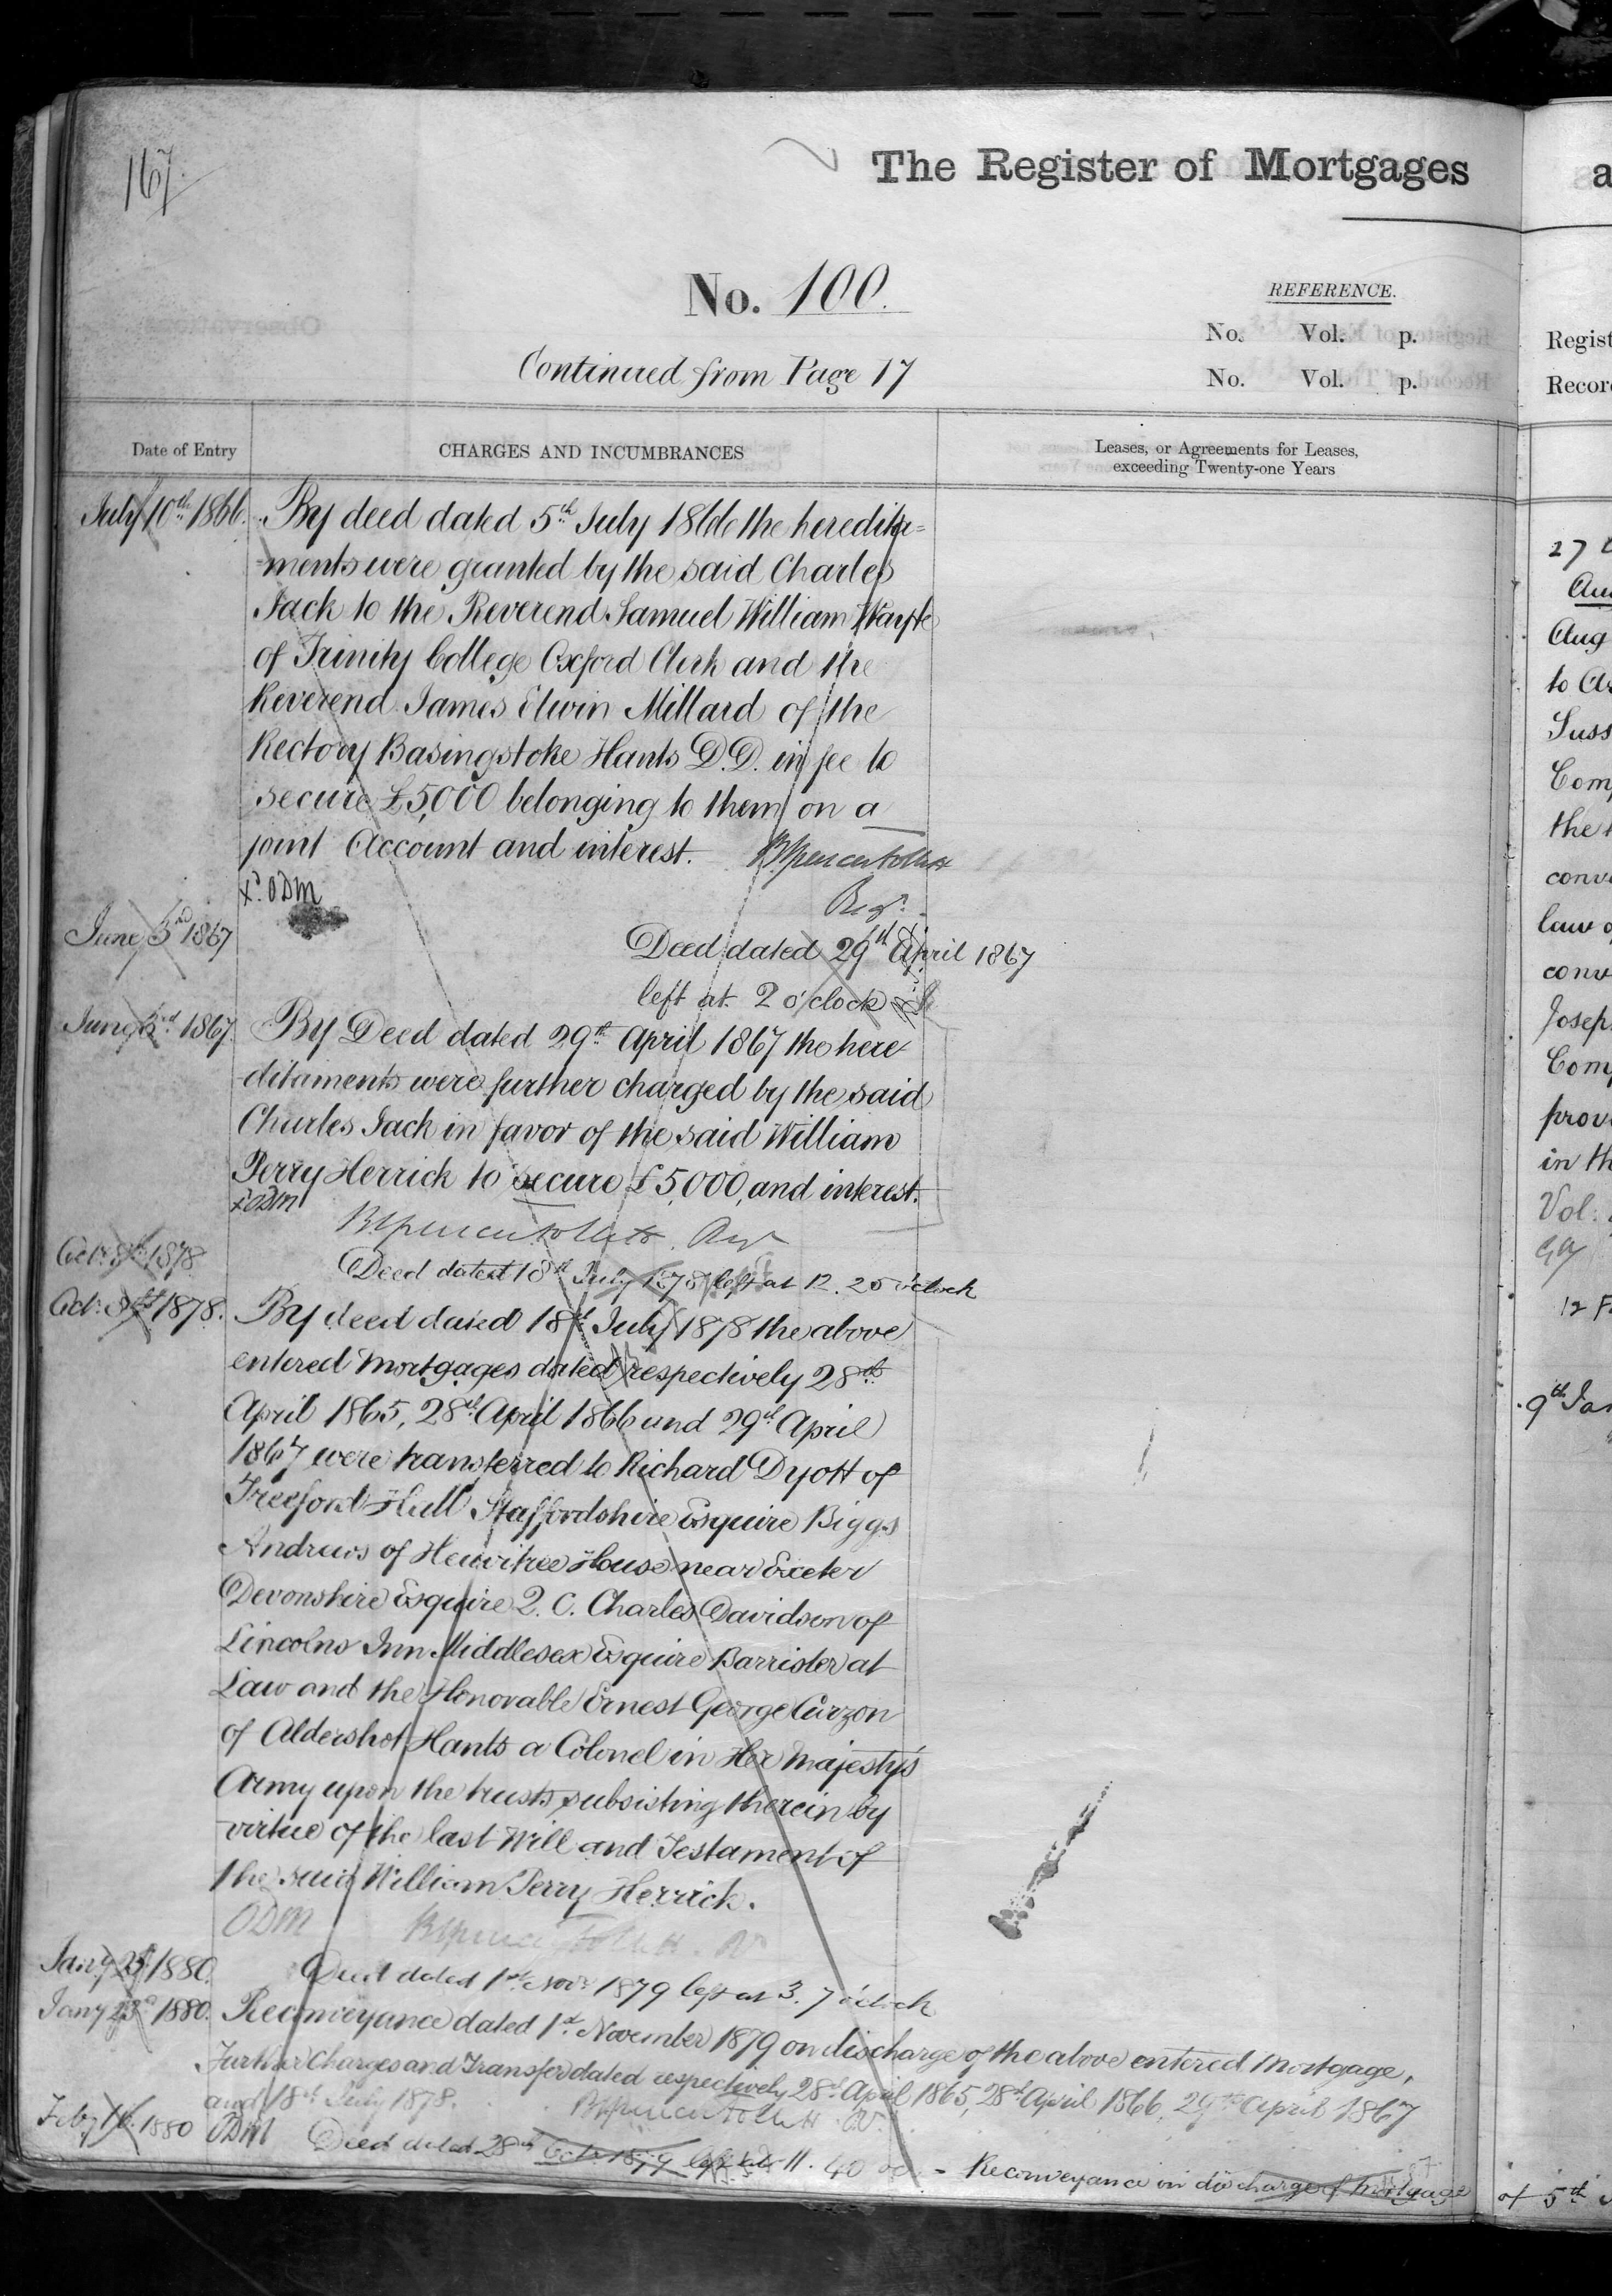 167.
The Register of Mortgages
No. 100.
REFERENCE.
No. Vol. p.
No. Vol. p.
Continued from Page 17
Date of Entry
CHARGES AND INCUMBRANCES
Leases, or Agreements for Leases,
exceeding Twenty-one Years
July 10th 1866. By deed dated 5th July 1866 the heredita=
=ments were granted by the said Charles
Jack to the Reverend Samuel William Wayte
of Trinity College Oxford Clerk and the
Reverend James Elwin Millard of the
Rectory Basingstoke Hants D.D. in fee to
secure £5,000 belonging to them on a
joint Account and interest.
ODM
Regr.
June 3rd 1867
Deed dated 29th April 1867
left at 2 o'clock
June 3rd 1867. By Deed dated 29th April 1867 the here
ditaments were further charged by the said
Charles Jack in favor of the said William
Perry Herrick to secure £5,000, and interest.
ODM
Regr
Oct. 8th 1878
Deed dated 18th July 1878 left at 12.25 o'clock
Oct. 1878. By deed dated 18th July 1878 the above
entered Mortgages dated respectively 28th
April 1865, 28th April 1866 and 29th April
1867 were transferred to Richard Dyott of
Freeford Hall Staffordshire Esquire Biggs
Andrews of Heavitree House near Exeter
Devonshire Esquire Q.C. Charles Davidson of
Lincolns Inn Middlesex Esquire Barrister at
Law and the Honorable Ernest George Curzon
of Aldershot Hants a Colonel in Her Majesty's
Army upon the trusts subsisting therein by
virtue of the last Will and Testament of
the said William Perry Herrick.
ODM
Jany 1880.
Deed dated 1st Novr 1879 left at 3.7 o'clock
Jany 23rd 1880. Reconveyance dated 1st November 1879 on discharge of the above entered Mortgage,
Further Charges and Transfer dated respectively 28th April 1865, 28th April 1866, 29th April 1867
and 18th July 1878.
ODM
Feby 1880
Deed dated 28th Octr 1879 left at 11.40 oc. - Reconveyance in discharge of Mortgage
of 5th
a
Regist
Record
27
Aug
to
Suss
Comp
the
conv
law
conv
Josep
Comp
prov
in th
Vol.
12
9th Jan